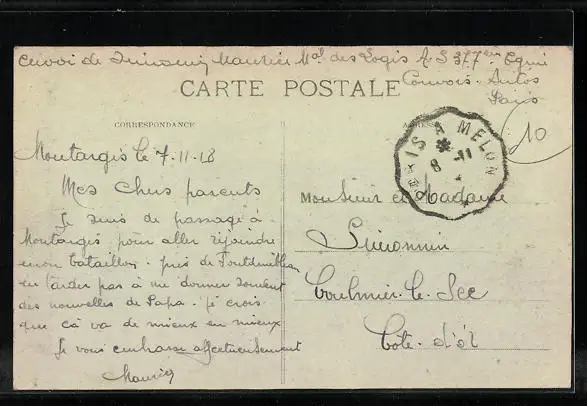 Envoi de Maurice Mal des Logis A.S 377em Equi
Convois. Autos
Paris
CARTE POSTALE
CORRESPONDANCE
ADRESSE
10
PARIS A MELUN
8 -11
Montargis le 7-11-18
Mes Chers parents
Je suis de passage à
Montargis pour aller rejoindre
mon bataillon. près de Fontainebleau
tarder pas à me donner souvent
des nouvelles de Papa. je crois
que cà va de mieux en mieux
Je vous embrasse affectueusement
Maurice
Monsieur et Madame
Coulmier. le Sec
Côte. d'or